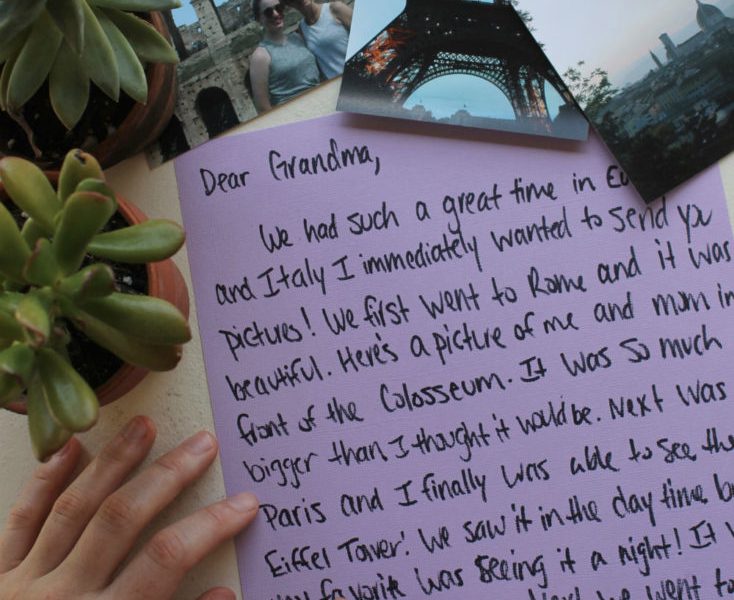 Dear Grandma,
We had such a great time in
and Italy I immediately wanted to send
pictures! We first went to Rome and it was
beautiful. Here's a picture of me and mom in
front of the Colosseum. It was so much
bigger than I thought it would be. Next was
Paris and I finally was able to see the
Eiffel Tower! We saw it in the day time
favorite was seeing it a night! It
we went to